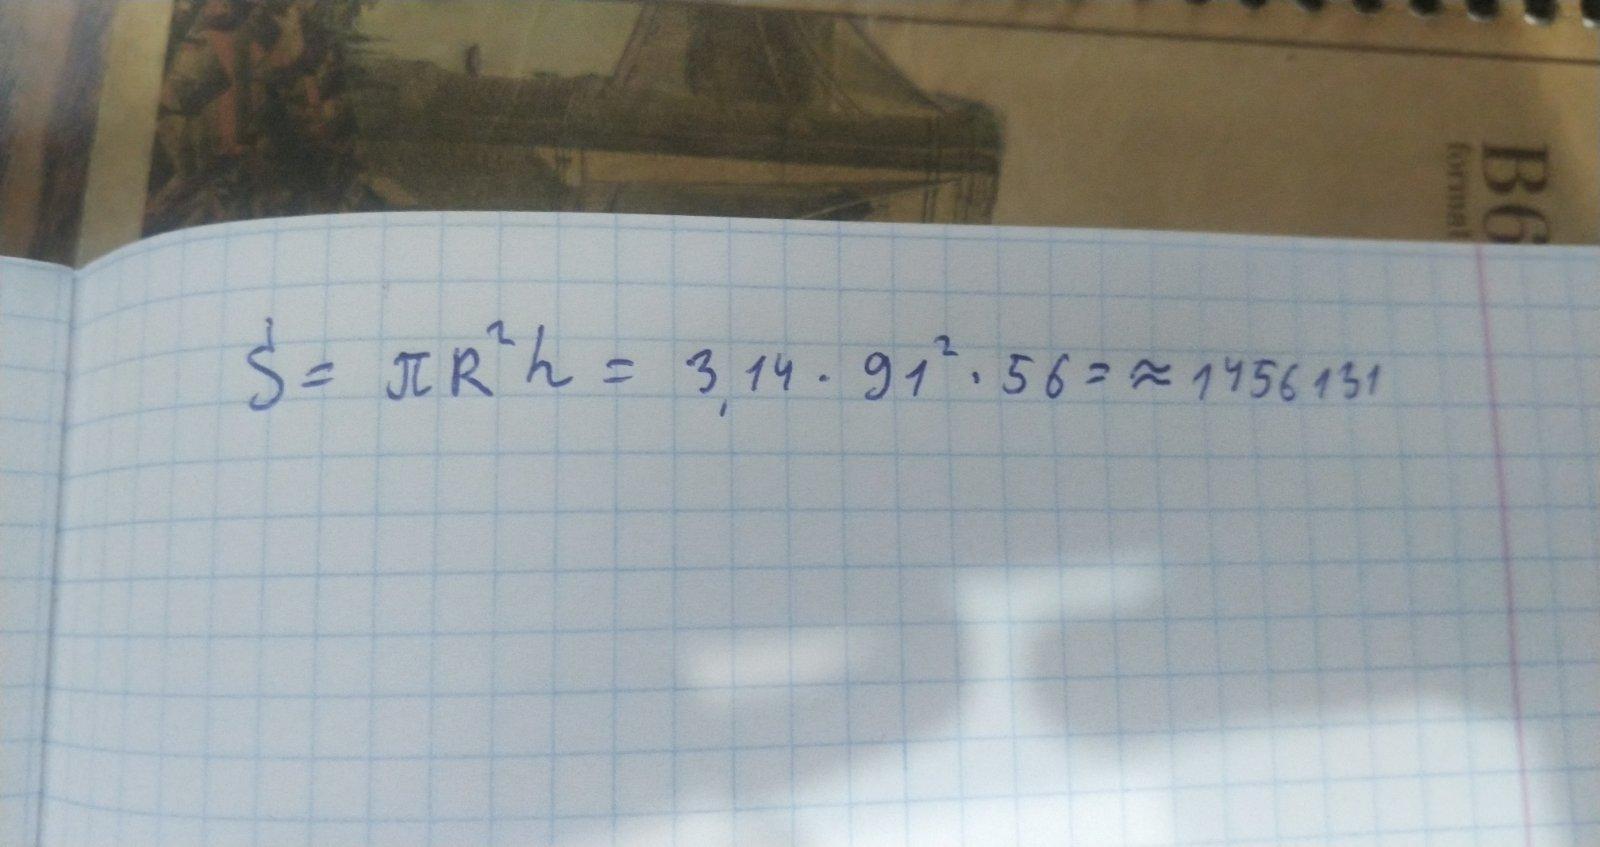 B6
format
S = πR²h = 3,14 · 91² · 56 = ≈ 1456131